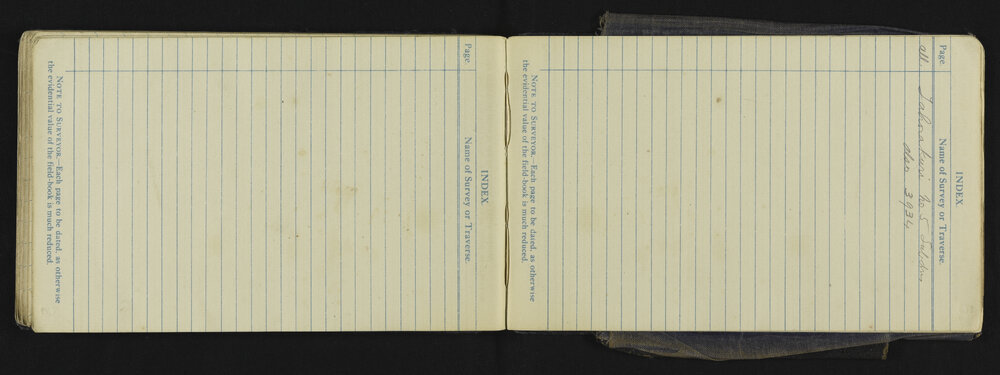 INDEX.
Page. Name of Survey or Traverse.
all No 5
3934
NOTE TO SURVEYOR.—Each page to be dated, as otherwise
the evidential value of the field-book is much reduced.
INDEX.
Page. Name of Survey or Traverse.
NOTE TO SURVEYOR.—Each page to be dated, as otherwise
the evidential value of the field-book is much reduced.